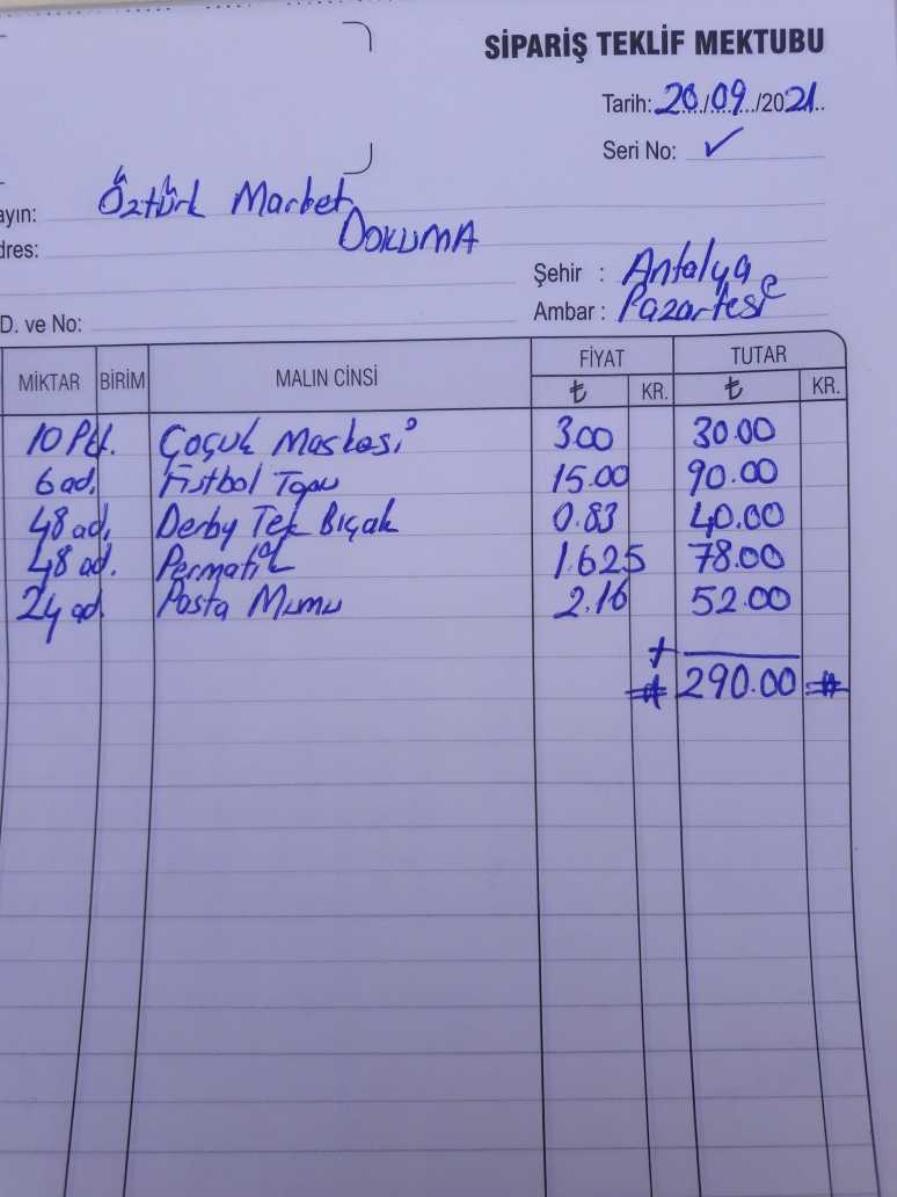 SİPARİŞ TEKLİF MEKTUBU
Tarih: 20/09/2021
Seri No: ✓
ayın: Öztürk Market
dres: DOKUMA
Şehir : Antalya
D. ve No: Ambar : Pazartesi
MİKTAR BİRİM MALIN CİNSİ FİYAT TUTAR
₺ KR. ₺ KR.
10 Pkt. Çoçuk Maskesi 3.00 30.00
6 ad. Futbol Topu 15.00 90.00
48 ad. Derby Tek Bıçak 0.83 40.00
48 ad. Permatik 1.625 78.00
24 ad Pasta Mumu 2.16 52.00
+
# 290.00 #